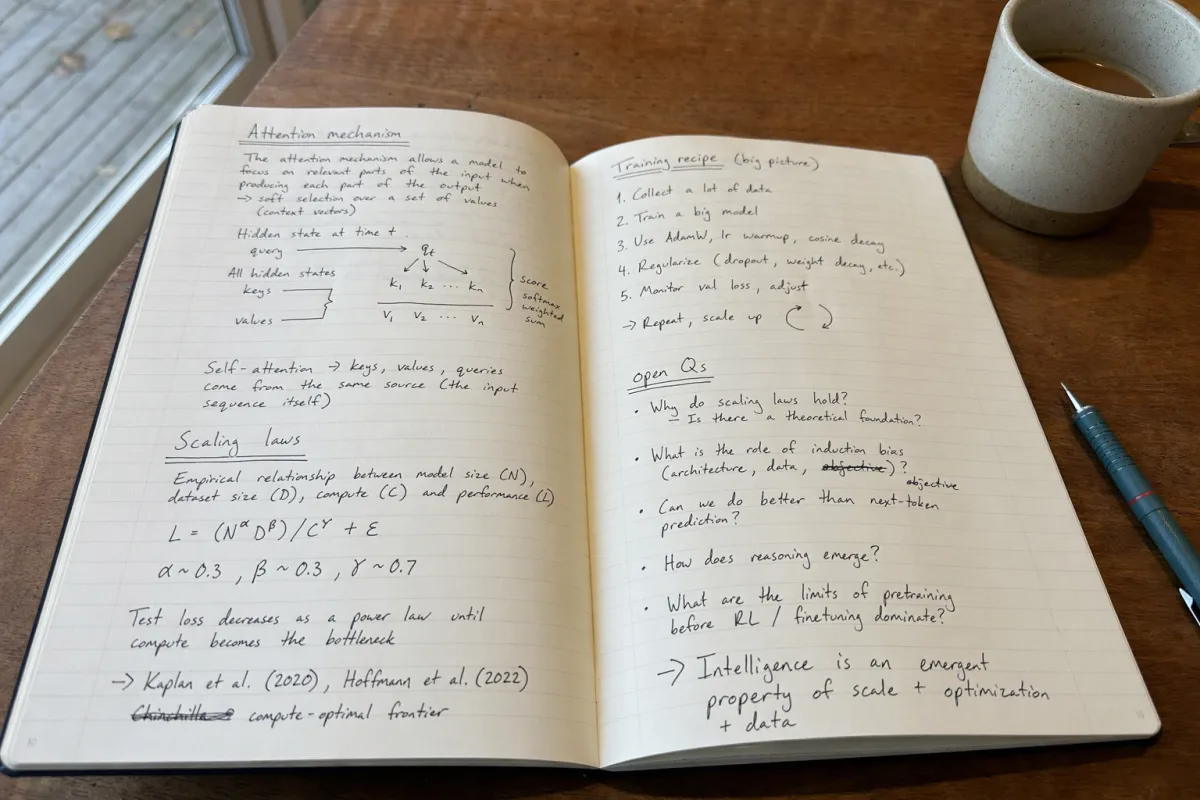 Attention mechanism
The attention mechanism allows a model to
focus on relevant parts of the input when
producing each part of the output
→ soft selection over a set of values
(context vectors)
Hidden state at time t
query → qt
All hidden states
keys
k1 k2 ... kn
values
v1 v2 ... vn
score
softmax
weighted
sum
Self-attention → keys, values, queries
come from the same source (the input
sequence itself)
Scaling laws
Empirical relationship between model size (N),
dataset size (D), compute (C) and performance (L)
L = (N^α D^β)/C^γ + ε
α ~ 0.3 , β ~ 0.3 , γ ~ 0.7
Test loss decreases as a power law until
compute becomes the bottleneck
→ Kaplan et al. (2020), Hoffmann et al. (2022)
Chinchilla compute-optimal frontier
10
Training recipe (big picture)
1. Collect a lot of data
2. Train a big model
3. Use AdamW, lr warmup, cosine decay
4. Regularize (dropout, weight decay, etc.)
5. Monitor val loss, adjust
→ Repeat, scale up
open Qs
• Why do scaling laws hold?
– Is there a theoretical foundation?
• What is the role of induction bias
(architecture, data, objective) ?
objective
• Can we do better than next-token
prediction?
• How does reasoning emerge?
• What are the limits of pretraining
before RL / finetuning dominate?
→ Intelligence is an emergent
property of scale + optimization
+ data